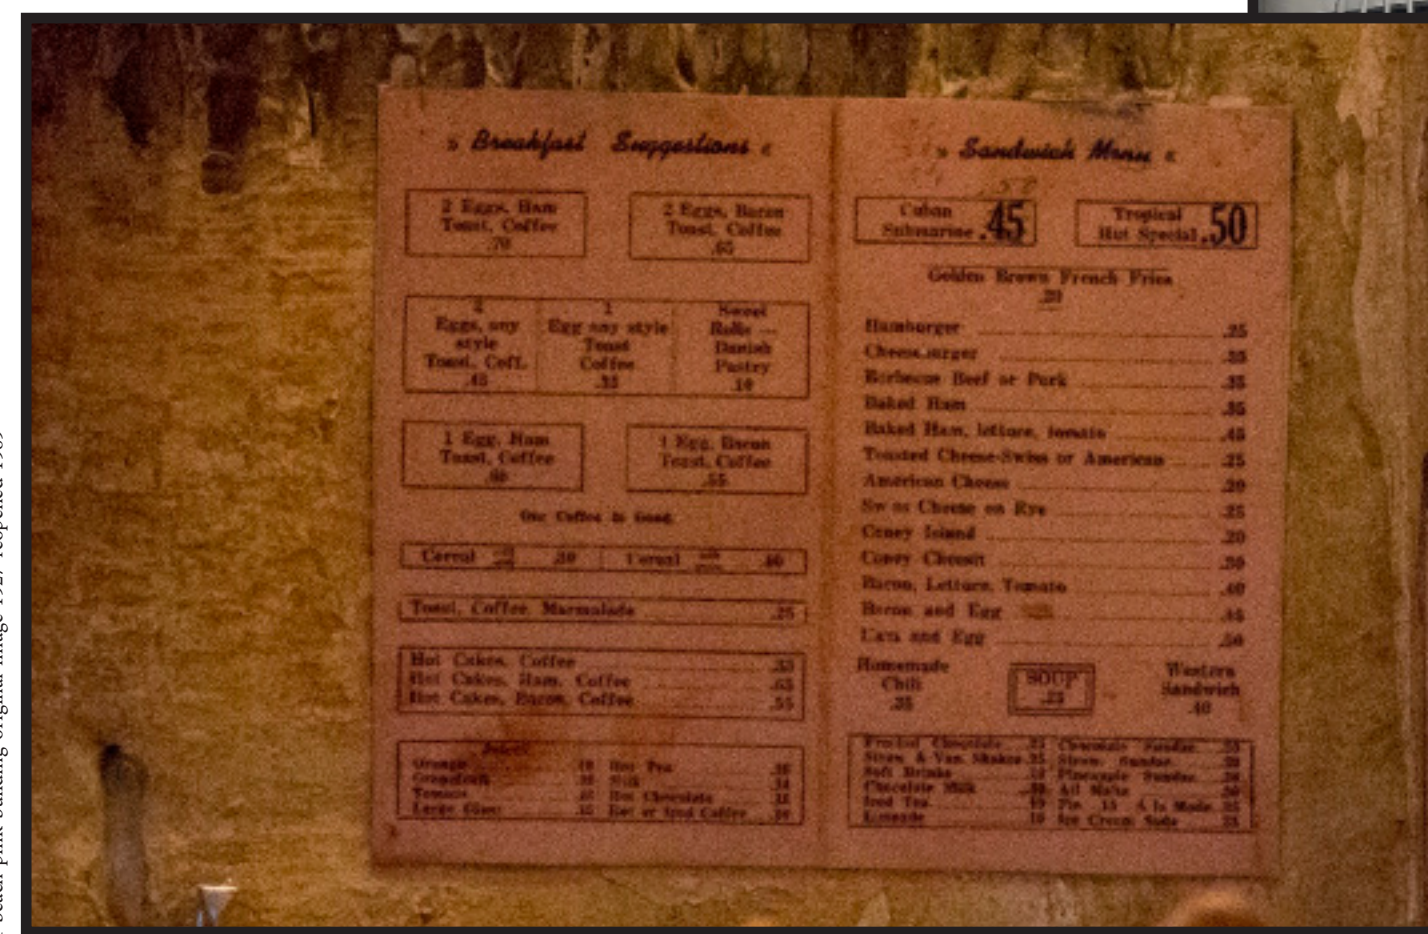 » Breakfast Suggestions «
2 Eggs, Ham
Toast, Coffee
.70
2 Eggs, Bacon
Toast, Coffee
.65
2
Eggs, any
style
Toast, Coff.
.45
1
Egg any style
Toast
Coffee
.35
Sweet
Rolls —
Danish
Pastry
.10
1 Egg, Ham
Toast, Coffee
.60
1 Egg, Bacon
Toast, Coffee
.55
Our Coffee is Good.
Cereal .30 Cereal .40
Toast, Coffee, Marmalade .25
Hot Cakes, Coffee .35
Hot Cakes, Ham, Coffee .65
Hot Cakes, Bacon, Coffee .55
Juices
Orange Hot Tea
Grapefruit Milk
Tomato Hot Chocolate
Large Glass Hot or Iced Coffee
» Sandwich Menu «
Cuban
Submarine .45
Tropical
Hut Special .50
Golden Brown French Fries
.20
Hamburger .25
Cheeseburger .35
Barbecue Beef or Pork .35
Baked Ham .35
Baked Ham, lettuce, tomato .45
Toasted Cheese-Swiss or American .25
American Cheese .20
Swiss Cheese on Rye .25
Coney Island .20
Coney Cheesit .30
Bacon, Lettuce, Tomato .40
Bacon and Egg .45
Ham and Egg .50
Homemade
Chili
.35
SOUP
.25
Western
Sandwich
.40
Frosted Chocolate .25 Chocolate Sundae
Straw. & Van. Shakes .25 Straw. Sundae
Soft Drinks .10 Pineapple Sundae
Chocolate Milk All Malts
Iced Tea .10 Pie .15 A la Mode .25
Limeade .10 Ice Cream Soda .25
beach pink building original image 1927 reopened 1989